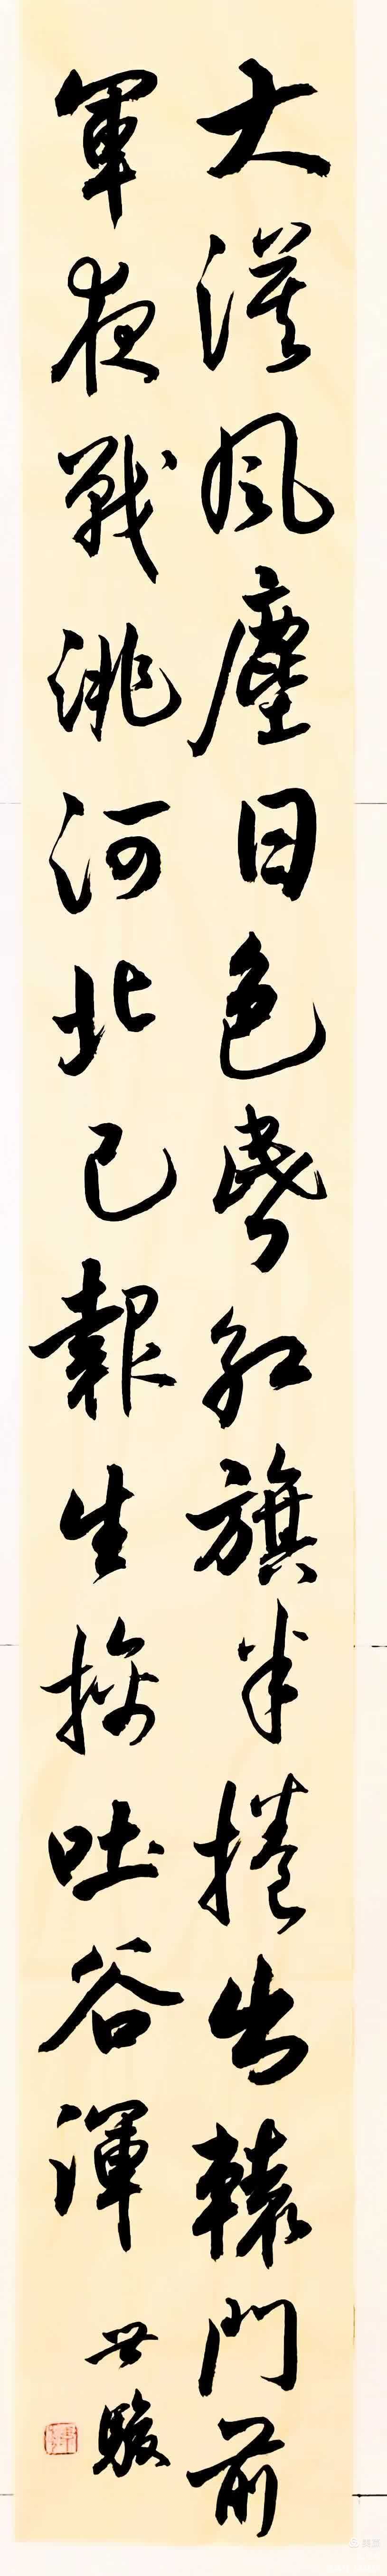 大漠風塵日色昏紅旗半捲出轅門前
軍夜戰洮河北已報生擒吐谷渾
世駿